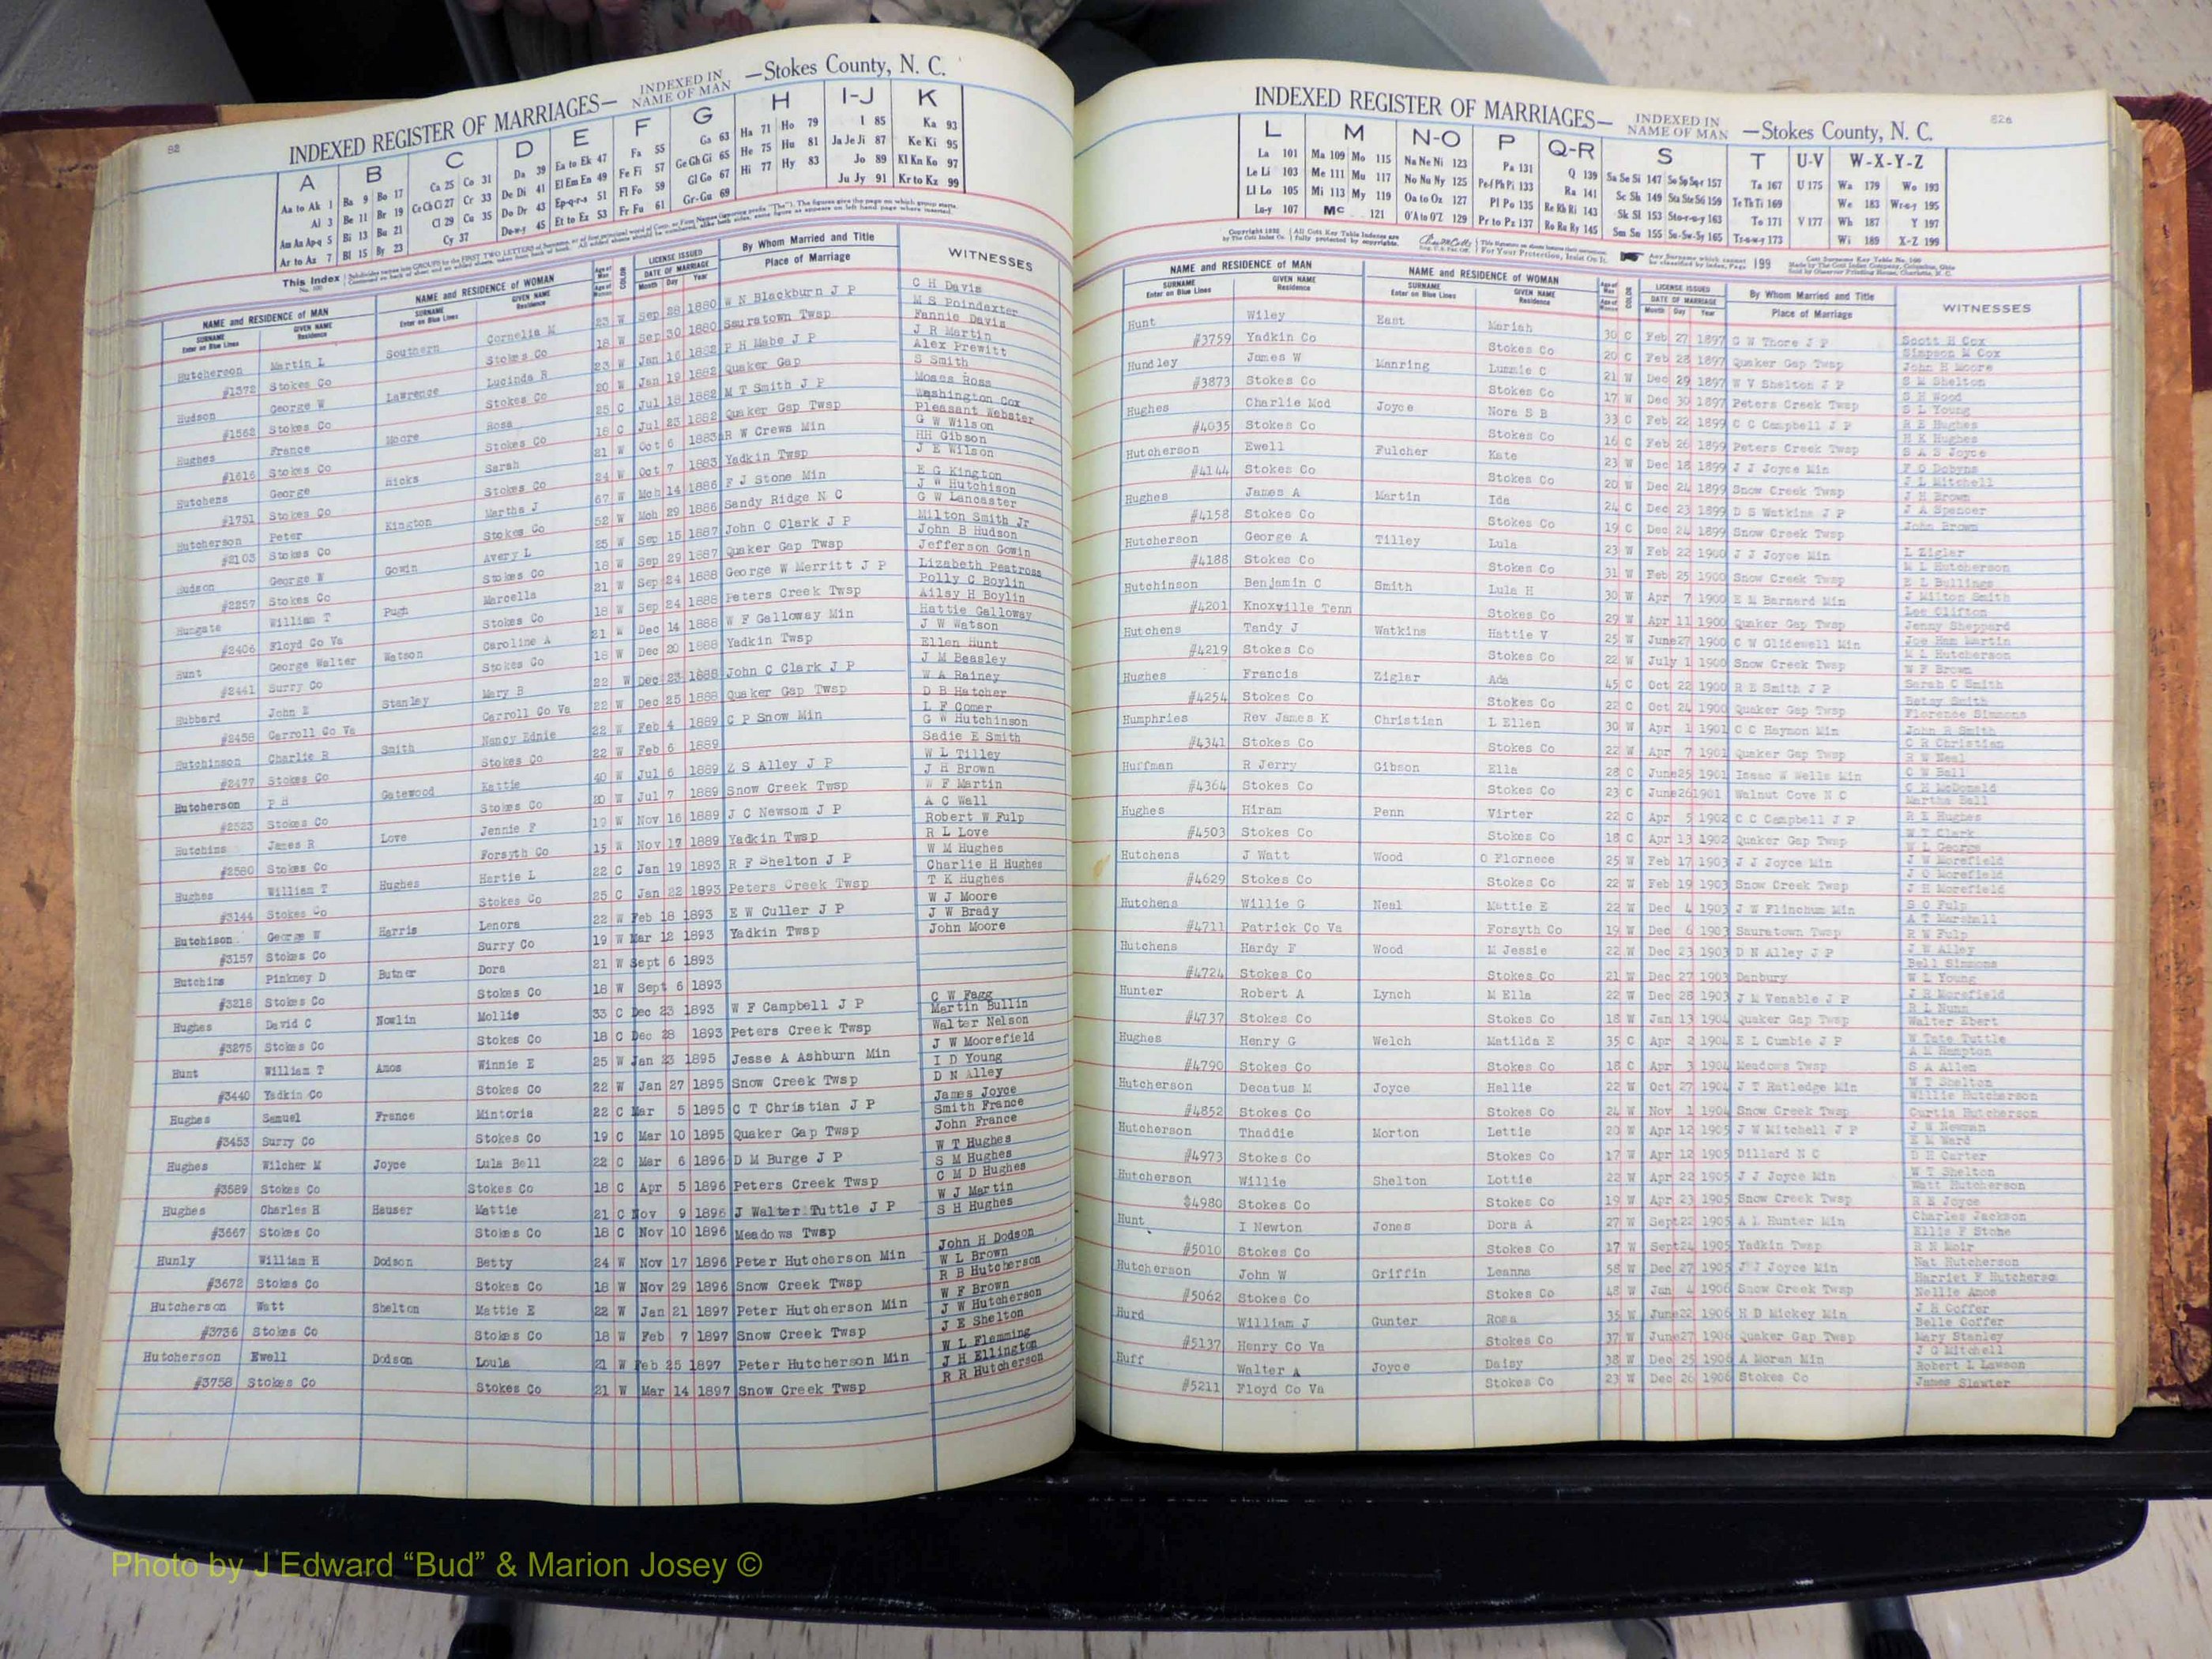 82
INDEXED REGISTER OF MARRIAGES— INDEXED IN NAME OF MAN —Stokes County, N. C.
A B C D E F G H I-J K
Aa to Ak 1 Ba 9 Bo 17 Ca 25 Co 31 Da 39 Ea to Ek 47 Fa 55 Ga 63 Ha 71 Ho 79 I 85 Ka 93
Al 3 Be 11 Br 19 Ce Ch Ci 27 Cr 33 De Di 41 El Em En 49 Fe Fi 57 Ge Gh Gi 65 He 75 Hu 81 Ja Je Ji 87 Ke Ki 95
Am An Ap-q 5 Bi 13 Bu 21 Cl 29 Cu 35 Do Dr 43 Ep-q-r-s 51 Fl Fo 59 Gl Go 67 Hi 77 Hy 83 Jo 89 Kl Kn Ko 97
Ar to Az 7 Bl 15 By 23 Cy 37 Du-w-y 45 Et to Ez 53 Fr Fu 61 Gr-Gu 69 Ju Jy 91 Kr to Kz 99
This Index
NAME and RESIDENCE OF MAN NAME and RESIDENCE OF WOMAN LICENSE ISSUED By Whom Married and Title WITNESSES
SURNAME GIVEN NAME SURNAME GIVEN NAME DATE OF MARRIAGE Place of Marriage
Enter on Blue Lines Residence Enter on Blue Lines Residence Month Day Year
Hutcherson Martin L Southern Cornelia M 23 W Sep 28 1880 W N Blackburn J P C H Davis
#1372 Stokes Co Stokes Co 18 W Sep 30 1880 Sauratown Twsp M S Poindexter
Fannie Davis
Hudson George W Lawrence Lucinda R 23 W Jan 16 1882 P H Mabe J P J R Martin
#1562 Stokes Co Stokes Co 20 W Jan 19 1882 Quaker Gap Alex Prewitt
S Smith
Hughes France Moore Rosa 25 C Jul 18 1882 M T Smith J P Moses Ross
#1616 Stokes Co Stokes Co 18 C Jul 23 1882 Quaker Gap Twsp Washington Cox
Pleasant Webster
Hutchens George Hicks Sarah 21 W Oct 6 1883 R W Crews Min G W Wilson
#1751 Stokes Co Stokes Co 24 W Oct 7 1883 Yadkin Twsp HH Gibson
J E Wilson
Hutcherson Peter Kington Martha J 67 W Mch 14 1886 F J Stone Min E G Kington
#2103 Stokes Co Stokes Co 52 W Mch 29 1886 Sandy Ridge N C J W Hutchison
G W Lancaster
Hudson George W Gowin Avery L 25 W Sep 15 1887 John C Clark J P Milton Smith Jr
#2257 Stokes Co Stokes Co 18 W Sep 29 1887 Quaker Gap Twsp John B Hudson
Jefferson Gowin
Hungate William T Pugh Marcella 21 W Sep 24 1888 George W Merritt J P Lizabeth Peatross
#2406 Floyd Co Va Stokes Co 18 W Sep 24 1888 Peters Creek Twsp Polly C Boylin
Ailsy H Boylin
Hunt George Walter Watson Caroline A 21 W Dec 14 1888 W F Galloway Min Hattie Galloway
#2441 Surry Co Stokes Co 18 W Dec 20 1888 Yadkin Twsp J W Watson
Ellen Hunt
Hubbard John E Stanley Mary B 22 W Dec 23 1888 John C Clark J P J M Beasley
#2458 Carroll Co Va Carroll Co Va 22 W Dec 25 1888 Quaker Gap Twsp W A Rainey
D B Hatcher
Hutchinson Charlie R Smith Nancy Ednie 22 W Feb 4 1889 C P Snow Min L F Comer
#2477 Stokes Co Stokes Co 22 W Feb 6 1889 G W Hutchinson
Sadie E Smith
Hutcherson P H Gatewood Hattie 40 W Jul 6 1889 Z S Alley J P W L Tilley
#2523 Stokes Co Stokes Co 20 W Jul 7 1889 Snow Creek Twsp J H Brown
W F Martin
Hutchins James R Love Jennie F 19 W Nov 16 1889 J C Newsom J P A C Wall
#2580 Stokes Co Forsyth Co 15 W Nov 17 1889 Yadkin Twsp Robert W Fulp
R L Love
Hughes William T Hughes Hertie L 22 C Jan 19 1893 R F Shelton J P W M Hughes
#3144 Stokes Co Stokes Co 25 C Jan 22 1893 Peters Creek Twsp Charlie H Hughes
T K Hughes
Hutchison George W Harris Lenora 22 W Feb 18 1893 E W Culler J P W J Moore
#3157 Stokes Co Surry Co 19 W Mar 12 1893 Yadkin Twsp J W Brady
John Moore
Hutchins Pinkney D Butner Dora 21 W Sept 6 1893
#3218 Stokes Co Stokes Co 18 W Sept 6 1893
Hughes David C Nowlin Mollie 33 C Dec 23 1893 W F Campbell J P C W Fagg
#3275 Stokes Co Stokes Co 18 C Dec 28 1893 Peters Creek Twsp Martin Bullin
Walter Nelson
Hunt William T Amos Winnie E 25 W Jan 23 1895 Jesse A Ashburn Min J W Moorefield
#3440 Yadkin Co Stokes Co 22 W Jan 27 1895 Snow Creek Twsp I D Young
D N Alley
Hughes Samuel France Mintoria 22 C Mar 5 1895 C T Christian J P James Joyce
#3453 Surry Co Stokes Co 19 C Mar 10 1895 Quaker Gap Twsp Smith France
John France
Hughes Wilcher M Joyce Lula Bell 22 C Mar 6 1896 D M Burge J P W T Hughes
#3589 Stokes Co Stokes Co 18 C Apr 5 1896 Peters Creek Twsp S M Hughes
C M D Hughes
Hughes Charles H Hauser Mattie 21 C Nov 9 1896 J Walter Tuttle J P W J Martin
#3667 Stokes Co Stokes Co 18 C Nov 10 1896 Meadows Twsp S H Hughes
Hunly William H Dodson Betty 24 W Nov 17 1896 Peter Hutcherson Min John H Dodson
#3672 Stokes Co Stokes Co 18 W Nov 29 1896 Snow Creek Twsp W L Brown
R B Hutcherson
Hutcherson Watt Shelton Mattie E 22 W Jan 21 1897 Peter Hutcherson Min W F Brown
#3736 Stokes Co Stokes Co 18 W Feb 7 1897 Snow Creek Twsp J W Hutcherson
J E Shelton
Hutcherson Ewell Dodson Loula 21 W Feb 25 1897 Peter Hutcherson Min W L Flemming
#3758 Stokes Co Stokes Co 21 W Mar 14 1897 Snow Creek Twsp J H Ellington
R R Hutcherson
82a
INDEXED REGISTER OF MARRIAGES— INDEXED IN NAME OF MAN —Stokes County, N. C.
L M N-O P Q-R S T U-V W-X-Y-Z
La 101 Ma 109 Mo 115 Na Ne Ni 123 Pa 131 Q 139 Sa Se Si 147 So Sp Sq-r 157 Ta 167 U 175 Wa 179 Wo 193
Le Li 103 Me 111 Mu 117 No Nu Ny 125 Pe-f Ph Pi 133 Ra 141 Sc Sh 149 Sta Ste Sti 159 Te Th Ti 169 We 183 Wr-u-y 195
Ll Lo 105 Mi 113 My 119 Oa to Oz 127 Pl Po 135 Re Rh Ri 143 Sk Sl 153 Sto-r-u-y 163 To 171 V 177 Wh 187 Y 197
Lu-y 107 Mc 121 O'A to O'Z 129 Pr to Pz 137 Ro Ru Ry 145 Sm Sn 155 Su-Sw-Sy 165 Tr-u-w-y 173 Wi 189 X-Z 199
NAME and RESIDENCE OF MAN NAME and RESIDENCE OF WOMAN LICENSE ISSUED By Whom Married and Title WITNESSES
SURNAME GIVEN NAME SURNAME GIVEN NAME DATE OF MARRIAGE Place of Marriage
Enter on Blue Lines Residence Enter on Blue Lines Residence Month Day Year
Hunt Wiley East Mariah 30 C Feb 27 1897 G W Thore J P Scott H Cox
#3759 Yadkin Co Stokes Co 20 C Feb 28 1897 Quaker Gap Twsp Simpson M Cox
John H Moore
Hundley James W Manring Lummie C 21 W Dec 29 1897 W V Shelton J P S M Shelton
#3873 Stokes Co Stokes Co 17 W Dec 30 1897 Peters Creek Twsp S H Wood
S L Young
Hughes Charlie Mcd Joyce Nora S B 33 C Feb 22 1899 C C Campbell J P R E Hughes
#4035 Stokes Co Stokes Co 16 C Feb 26 1899 Peters Creek Twsp H K Hughes
S A S Joyce
Hutcherson Ewell Fulcher Kate 23 W Dec 18 1899 J J Joyce Min F G Dobyns
#4144 Stokes Co Stokes Co 20 W Dec 24 1899 Snow Creek Twsp J L Mitchell
J H Brown
Hughes James A Martin Ida 24 C Dec 23 1899 D S Watkins J P J A Spencer
#4158 Stokes Co Stokes Co 19 C Dec 24 1899 Snow Creek Twsp John Brown
Hutcherson George A Tilley Lula 23 W Feb 22 1900 J J Joyce Min L Zigler
#4188 Stokes Co Stokes Co 31 W Feb 25 1900 Snow Creek Twsp M L Hutcherson
E L Bullings
Hutchinson Benjamin C Smith Lula H 30 W Apr 7 1900 E M Barnard Min J Milton Smith
#4201 Knoxville Tenn Stokes Co 29 W Apr 11 1900 Quaker Gap Twsp Lee Clifton
Jenny Sheppard
Hutchens Tandy J Watkins Hattie V 25 W June 27 1900 C W Glidewell Min Joe Ham Martin
#4219 Stokes Co Stokes Co 22 W July 1 1900 Snow Creek Twsp M L Hutcherson
W F Brown
Hughes Francis Ziglar Ada 45 C Oct 22 1900 R E Smith J P Sarah C Smith
#4254 Stokes Co Stokes Co 22 C Oct 24 1900 Quaker Gap Twsp Betsy Smith
Florence Simmons
Humphries Rev James K Christian L Ellen 30 W Apr 1 1901 C C Haymon Min John R Smith
#4341 Stokes Co Stokes Co 22 W Apr 7 1901 Quaker Gap Twsp C R Christian
R W Neal
Huffman R Jerry Gibson Ella 28 C June 25 1901 Isaac W Wells Min C W Ball
#4364 Stokes Co Stokes Co 23 C June 26 1901 Walnut Cove N C C H McDonald
Martha Ball
Hughes Hiram Penn Virter 22 C Apr 5 1902 C C Campbell J P R E Hughes
#4503 Stokes Co Stokes Co 18 C Apr 13 1902 Quaker Gap Twsp W T Clark
W L George
Hutchens J Watt Wood O Flornece 25 W Feb 17 1903 J J Joyce Min J W Morefield
#4629 Stokes Co Stokes Co 22 W Feb 19 1903 Snow Creek Twsp J O Morefield
J H Morefield
Hutchens Willie G Neal Mattie E 22 W Dec 4 1903 J W Flinchum Min S O Fulp
#4711 Patrick Co Va Forsyth Co 19 W Dec 6 1903 Sauratown Twsp A T Marshall
R W Fulp
Hutchens Hardy F Wood M Jessie 22 W Dec 23 1903 D N Alley J P J W Alley
#4724 Stokes Co Stokes Co 21 W Dec 27 1903 Danbury Bell Simmons
W L Young
Hunter Robert A Lynch M Ella 22 W Dec 28 1903 J M Venable J P J R Morefield
#4737 Stokes Co Stokes Co 18 W Jan 13 1904 Quaker Gap Twsp R L Nunn
Walter Ebert
Hughes Henry G Welch Matilda E 35 C Apr 2 1904 E L Cumbie J P W Tate Tuttle
#4790 Stokes Co Stokes Co 18 C Apr 3 1904 Meadows Twsp A L Hampton
S A Allen
Hutcherson Decatus M Joyce Hallie 22 W Oct 27 1904 J T Ratledge Min W T Shelton
#4852 Stokes Co Stokes Co 24 W Nov 1 1904 Snow Creek Twsp Willie Hutcherson
Curtis Hutcherson
Hutcherson Thaddie Morton Lettie 20 W Apr 12 1905 J W Mitchell J P J W Newman
#4973 Stokes Co Stokes Co 17 W Apr 12 1905 Dillard N C E M Ward
D H Carter
Hutcherson Willie Shelton Lottie 22 W Apr 22 1905 J J Joyce Min W T Shelton
$4980 Stokes Co Stokes Co 19 W Apr 23 1905 Snow Creek Twsp Watt Hutcherson
R E Joyce
Hunt I Newton Jones Dora A 27 W Sept 22 1905 A L Hunter Min Charles Jackson
#5010 Stokes Co Stokes Co 17 W Sept 24 1905 Yadkin Twsp Ellis F Stone
R N Moir
Hutcherson John W Griffin Leanna 58 W Dec 27 1905 J J Joyce Min Nat Hutcherson
#5062 Stokes Co Stokes Co 48 W Jan 4 1906 Snow Creek Twsp Harriet F Hutcherso
Nellie Amos
Hurd William J Gunter Rosa 35 W June 22 1906 H D Mickey Min J H Coffer
#5137 Henry Co Va Stokes Co 37 W June 27 1906 Quaker Gap Twsp Belle Coffer
Mary Stanley
Huff Walter A Joyce Daisy 38 W Dec 25 1906 A Moran Min J G Mitchell
#5211 Floyd Co Va Stokes Co 23 W Dec 26 1906 Stokes Co Robert L Lawson
James Slawter
Photo by J Edward “Bud” & Marion Josey ©